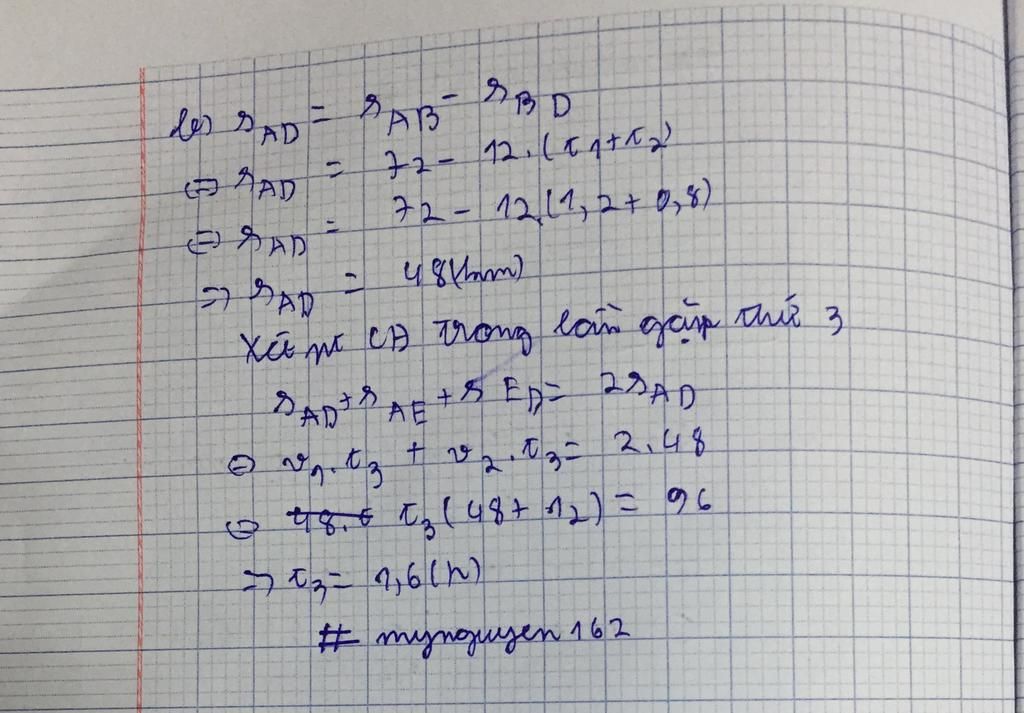 b) s_AD = s_AB - s_BD
⇔ s_AD = 72 - 12.(t1+t2)
⇔ s_AD = 72 - 12.(1,2+0,8)
⇒ s_AD = 48(km)
Xét CĐ trong lần gặp thứ 3
s_AD + s_AE + s_ED = 2s_AD
⇔ v1.t3 + v2.t3 = 2.48
⇔ t3(48+12) = 96
⇒ t3 = 1,6(h)
# mynguyen162